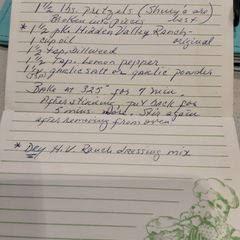 1 1/2 lbs. pretzels (Shurfy's are
Broken into pieces best)
* 1/2 pk. Hidden Valley Ranch-
1 cup oil original
1/2 tsp. Dillweed
1/2 tsp. Lemon pepper
1/2 garlic salt or garlic powder
(tsp)
Bake at 325° for 7 min.
After stirring put back for
5 mins more. Stir again
after removing from oven
* Dry H.V. Ranch dressing mix